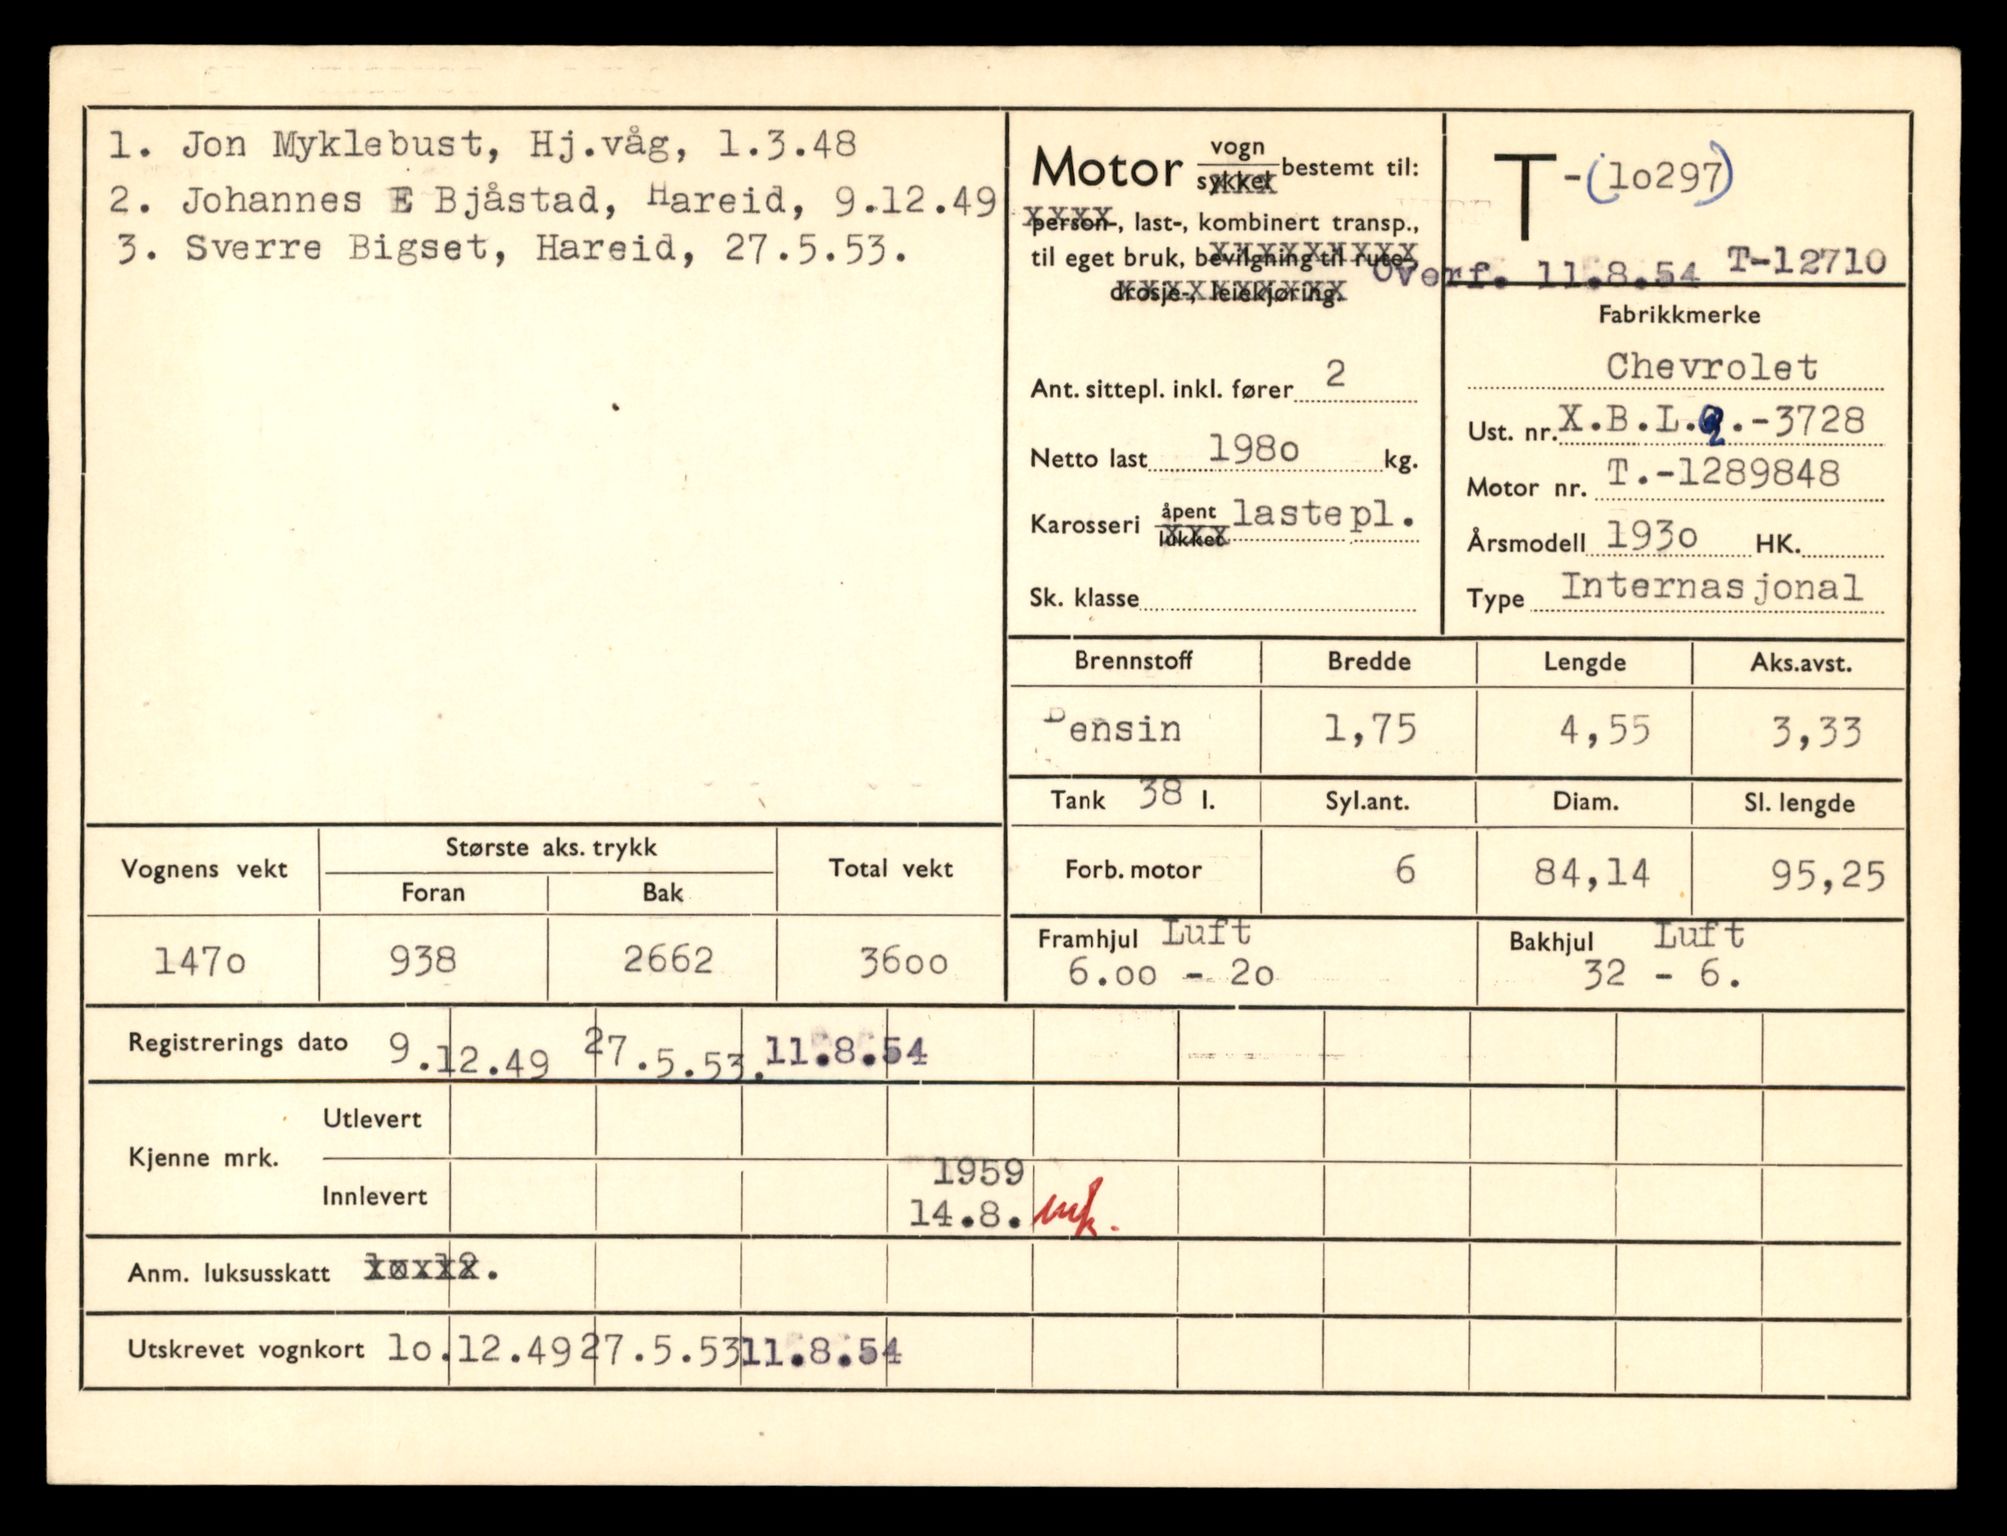 1. Jon Myklebust, Hj.våg, 1.3.48
2. Johannes E Bjåstad, Hareid, 9.12.49
3. Sverre Bigset, Hareid, 27.5.53.
Motor vogn sykkel bestemt til:
person-, last-, kombinert transp.,
til eget bruk, bevilgning til rute-,
drosje-, leiekjøring.
T-(1o297)
Overf. 11.8.54 T-12710
Ant. sittepl. inkl. fører 2
Netto last 198o kg.
Karosseri åpent lukket lastepl.
Sk. klasse
Fabrikkmerke
Chevrolet
Ust. nr. X.B.L.Q.-3728
Motor nr. T.-1289848
Årsmodell 193o HK.
Type Internasjonal
Brennstoff Bredde Lengde Aks.avst.
Bensin 1,75 4,55 3,33
Tank 38 l. Syl.ant. Diam. Sl. lengde
Forb. motor 6 84,14 95,25
Framhjul Luft Bakhjul Luft
6.oo - 2o 32 - 6.
Vognens vekt Største aks. trykk Total vekt
Foran Bak
147o 938 2662 36oo
Registrerings dato 9.12.49 27.5.53. 11.8.54
Kjenne mrk. Utlevert
Innlevert 1959
14.8. mk.
Anm. luksusskatt
Utskrevet vognkort 1o.12.49 27.5.53 11.8.54